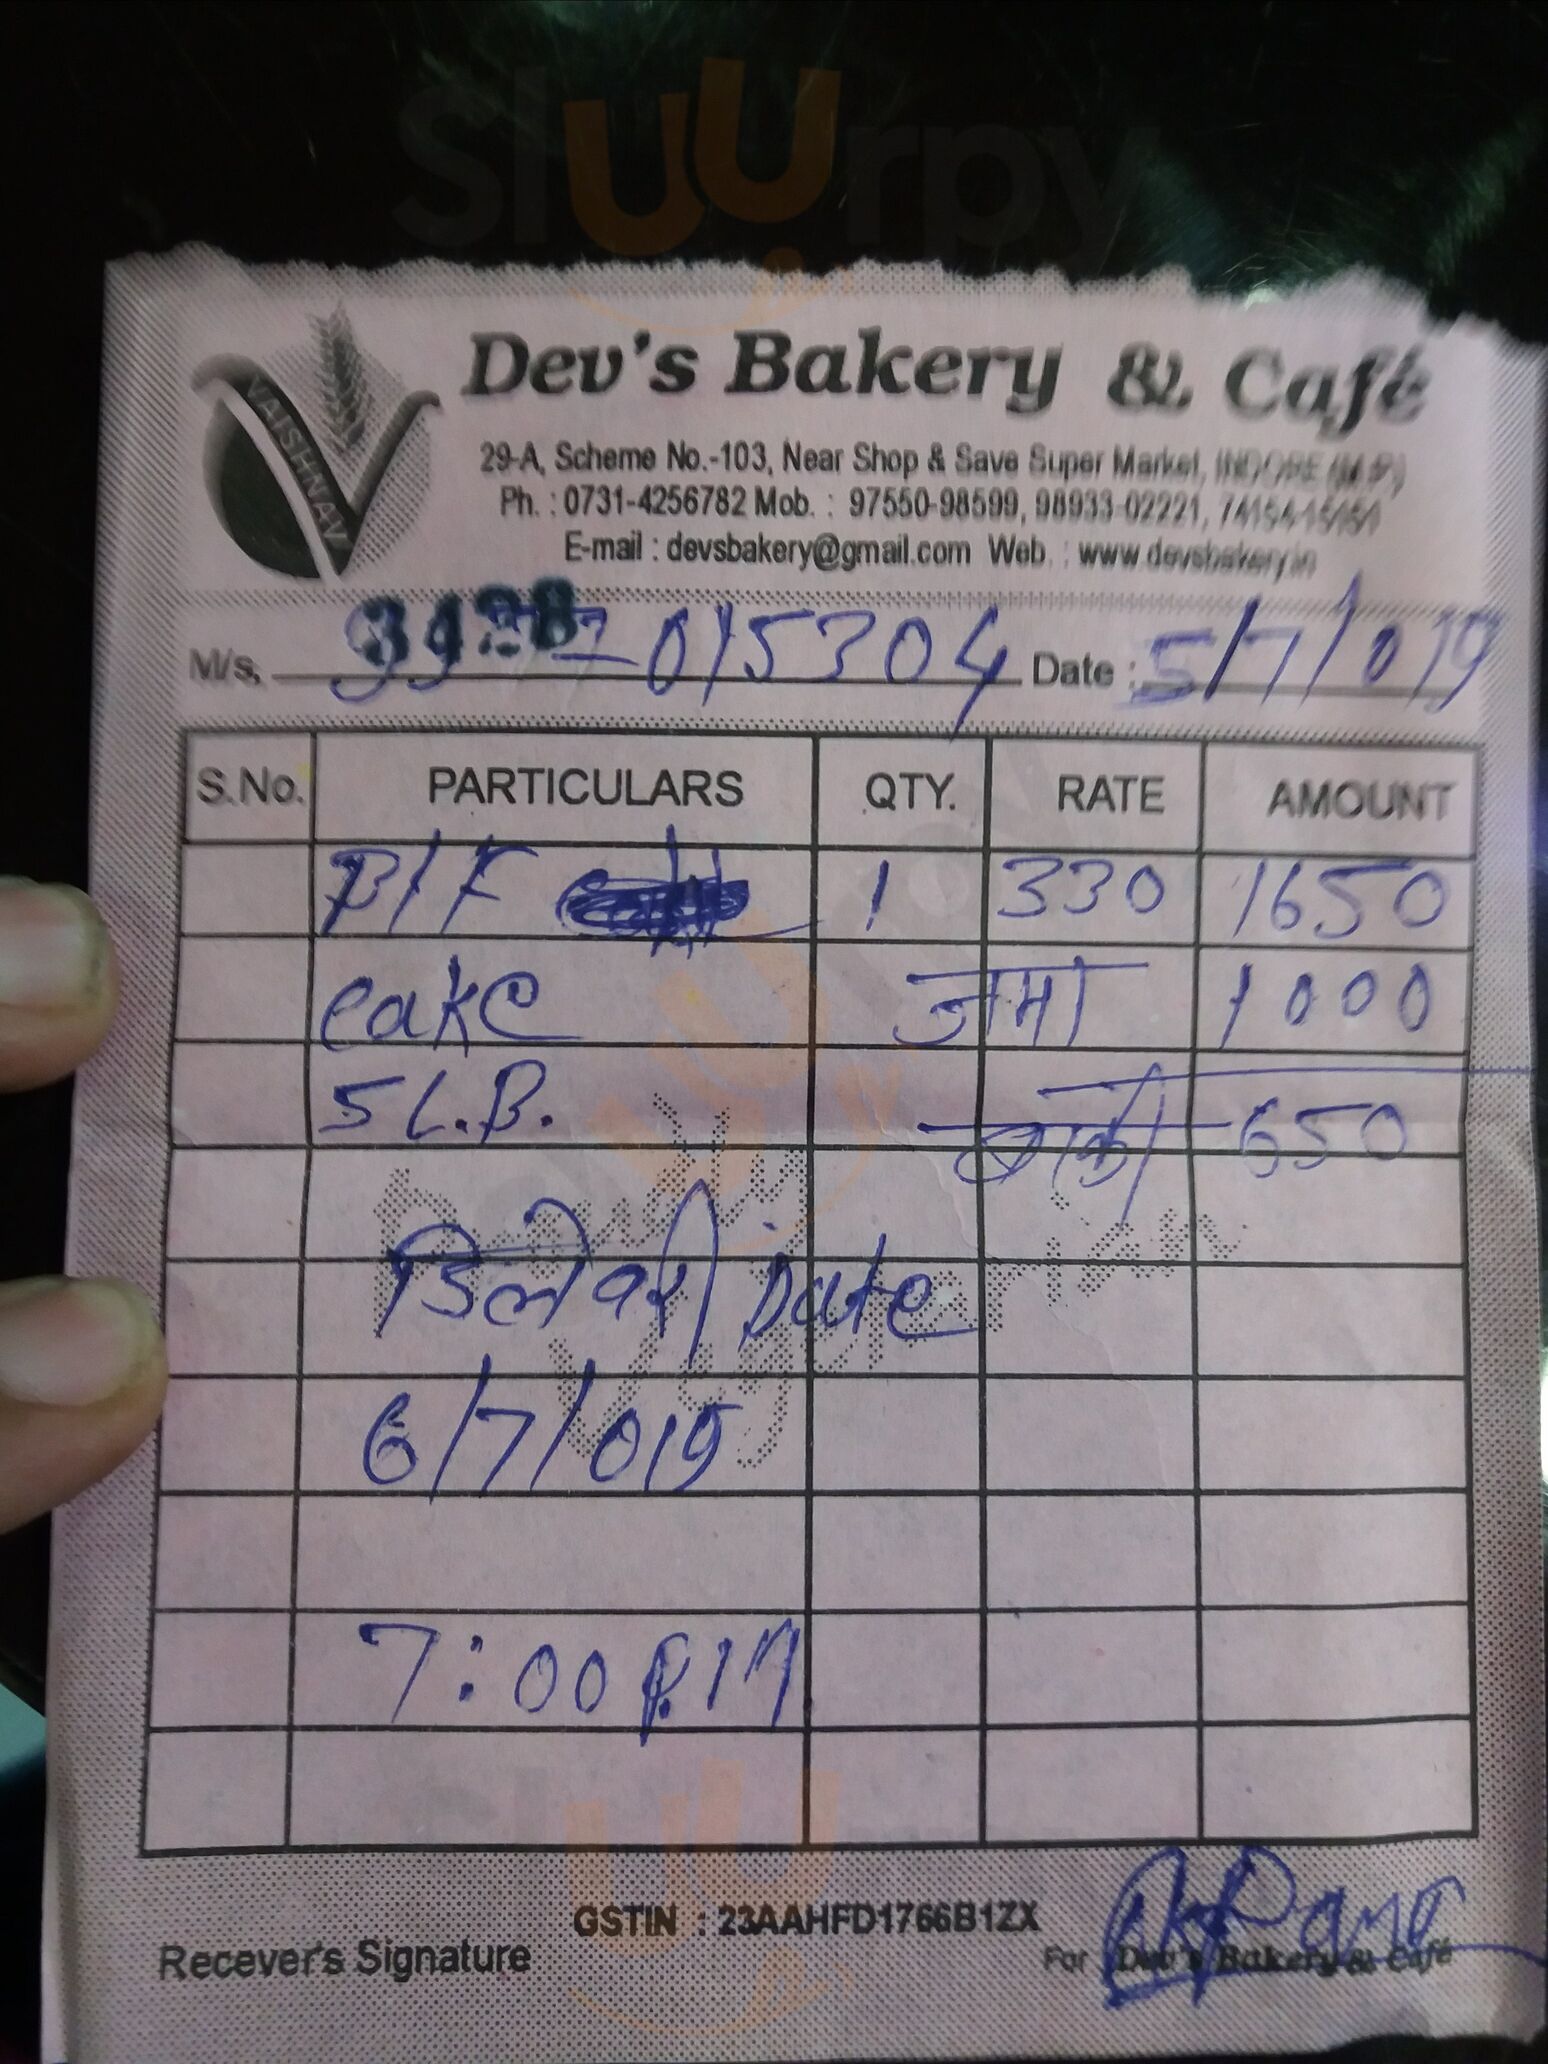 Sluurpy
Dev's Bakery & Café
VAISHNAV
29-A, Scheme No.-103, Near Shop & Save Super Market, INDORE (M.P.)
Ph. : 0731-4256782 Mob. : 97550-98599, 98933-02221, 74154-15151
E-mail : devsbakery@gmail.com Web. : www.devsbakery.in
M/s. 015304 Date : 5/7/019
S.No. PARTICULARS QTY. RATE AMOUNT
P/F 1 330 1650
cake जमा 1000
5 L.B. बाकी 650
डिलेवरी Date
6/7/019
7:00 P.M
GSTIN : 23AAHFD1766B1ZX
Recever's Signature For Dev's Bakery & Café